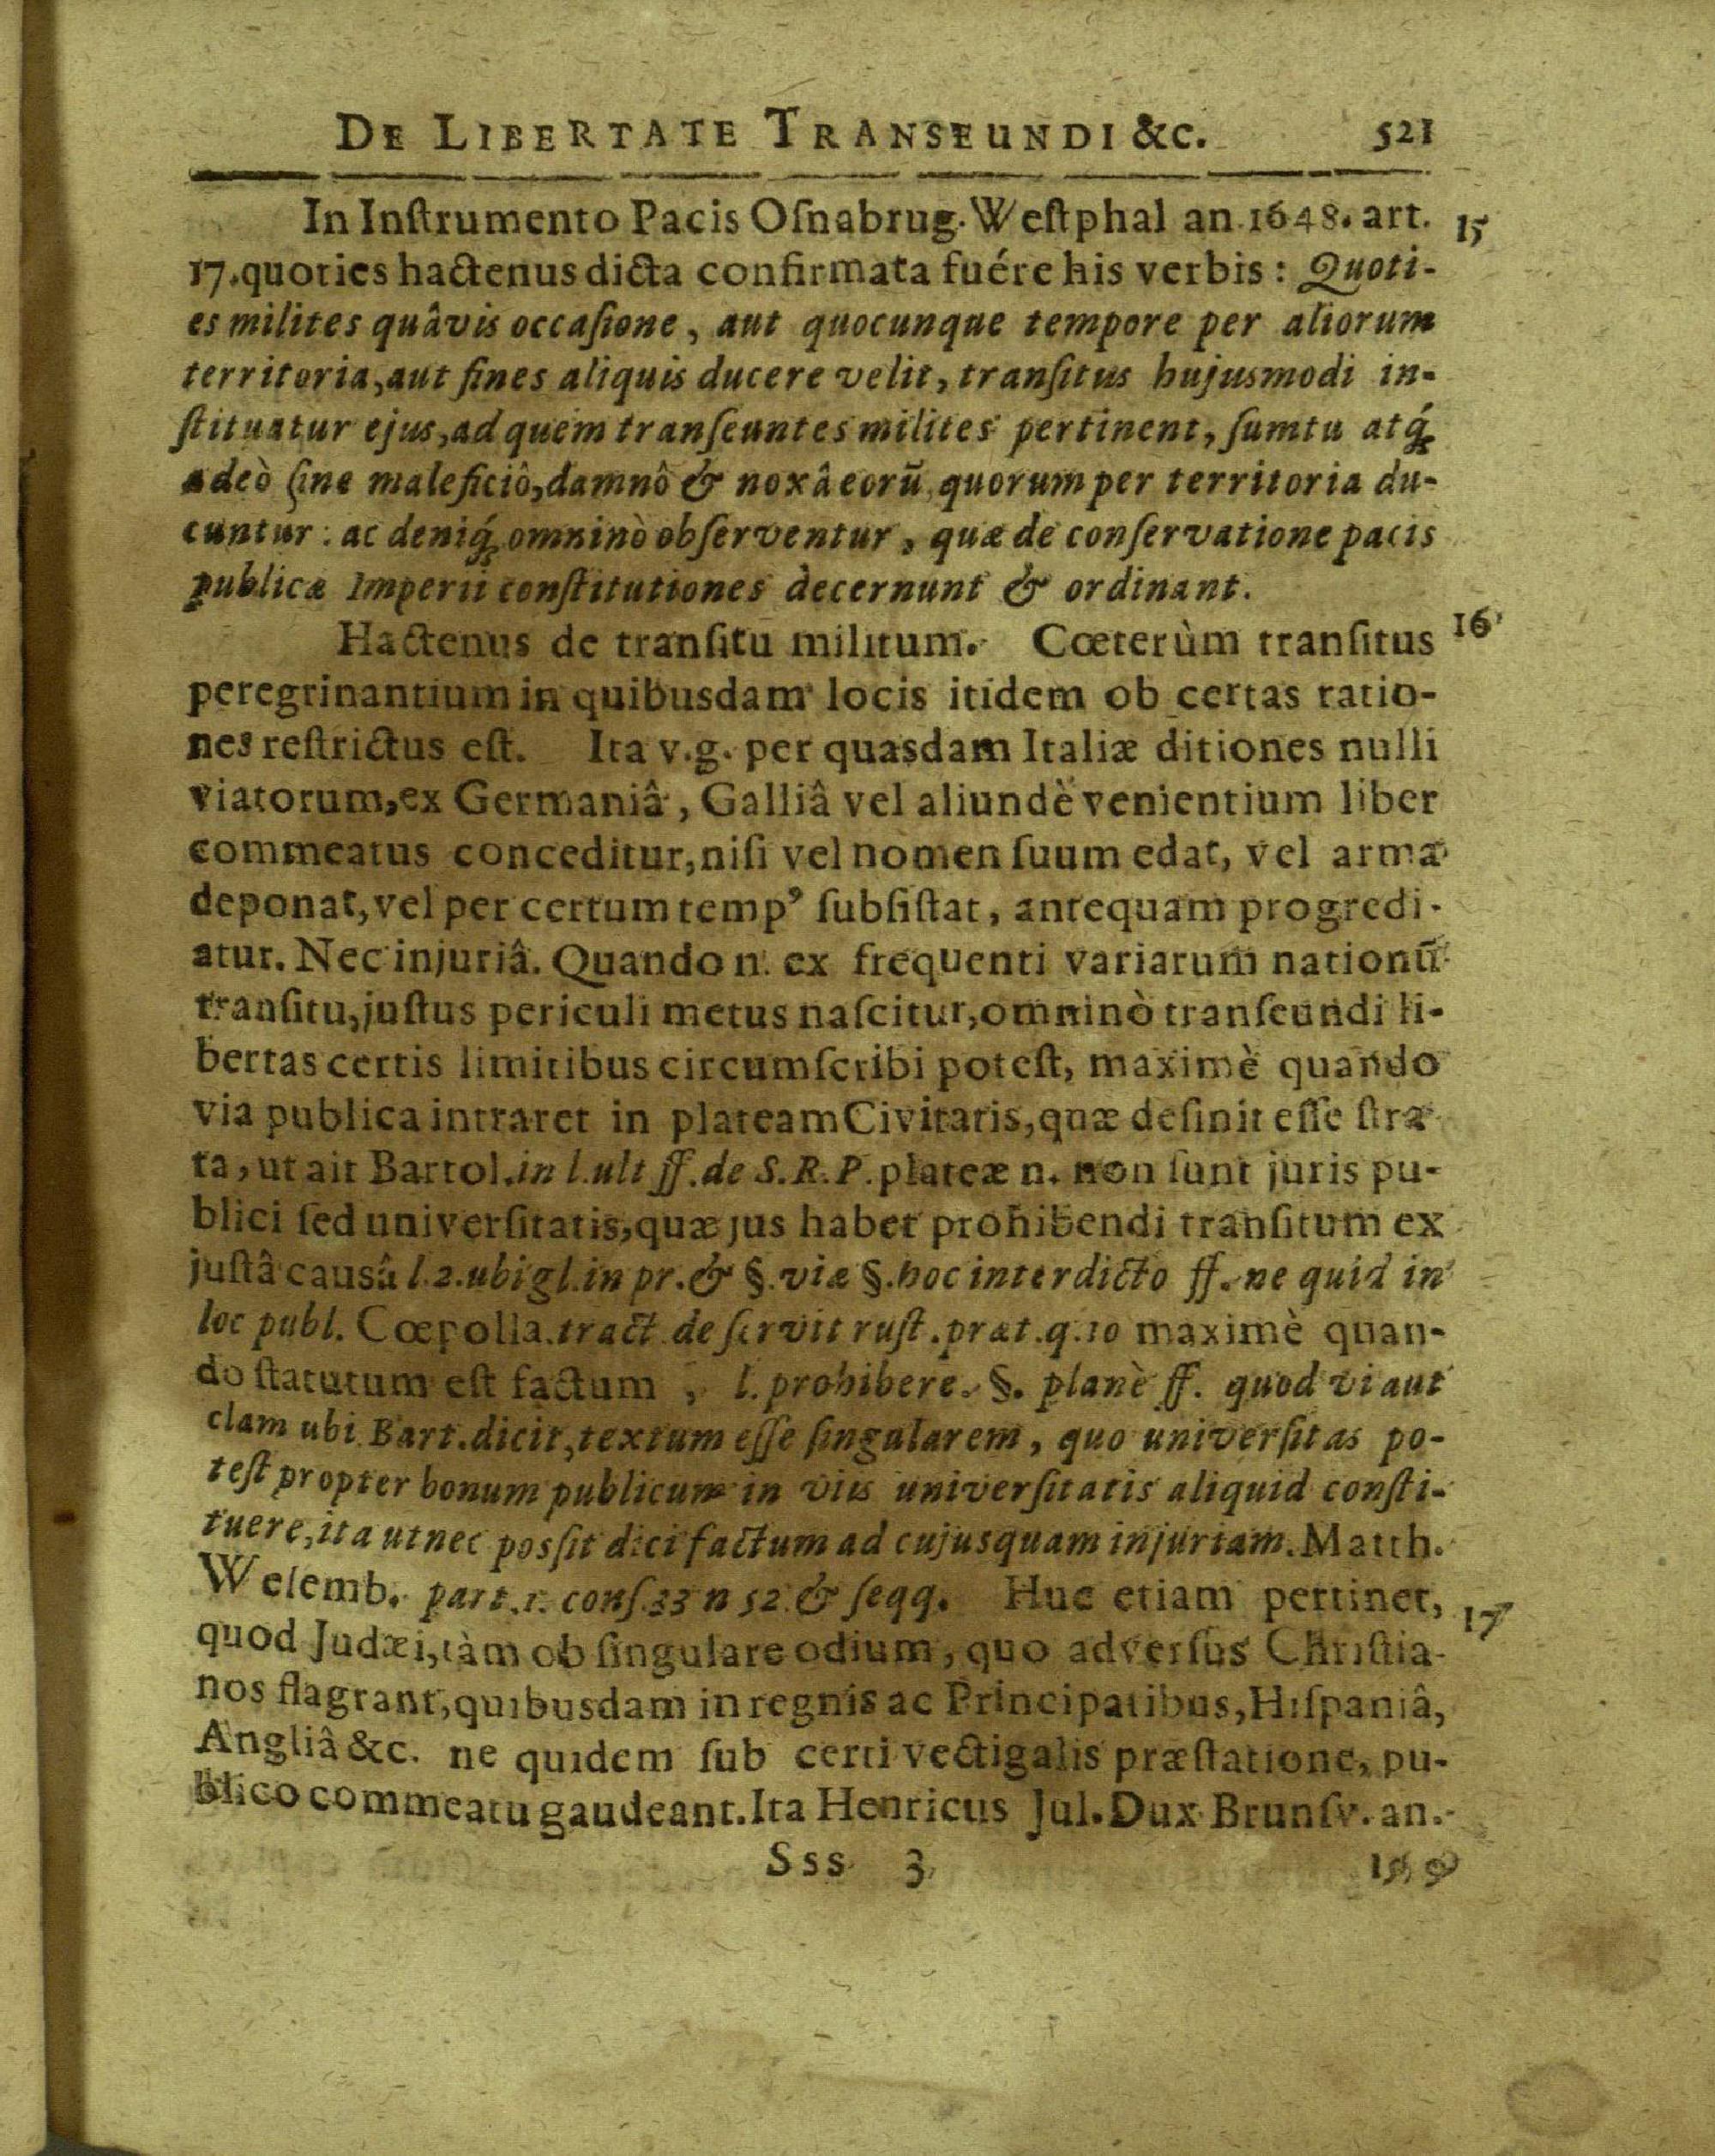 DE LIBERTATE TRANSEUNDI &c. 521
In Inſtrumento Pacis Oſnabrug. Weſtphal an. 1648. art. 15
17. quoties hactenus dicta confirmata fuére his verbis: Quoti-
es milites quâvis occaſione, aut quocunque tempore per aliorum
territoria, aut fines aliquis ducere velit, tranſitus hujusmodi in-
ſtituatur ejus, ad quem tranſeuntes milites pertinent, ſumtu atq́;
adeò ſine maleficiô, damnô & noxâ eorũ, quorum per territoria du-
cuntur: ac deniq́; omninò obſerventur, quæ de conſervatione pacis
publicæ Imperii conſtitutiones decernunt & ordinant.
Hactenus de tranſitu militum. Cœterùm tranſitus 16
peregrinantium in quibusdam locis itidem ob certas ratio-
nes reſtrictus eſt. Ita v.g. per quasdam Italiæ ditiones nulli
viatorum, ex Germaniâ, Galliâ vel aliundè venientium liber
commeatus conceditur, niſi vel nomen ſuum edat, vel arma
deponat, vel per certum tempꝰ ſubſiſtat, antequam progredi-
atur. Nec injuriâ. Quando n. ex frequenti variarum nationũ
tranſitu, juſtus periculi metus naſcitur, omninò tranſeundi li-
bertas certis limitibus circumſcribi poteſt, maximè quando
via publica intraret in plateam Civitatis, quæ deſinit eſſe ſtra-
ta, ut ait Bartol. in l. ult ff. de S.R.P. plateæ n. non ſunt juris pu-
blici ſed univerſitatis, quæ jus habet prohibendi tranſitum ex
juſtâ causâ l.2. ubi gl. in pr. & §. viæ §. hoc interdicto ff. ne quid in
loc publ. Cœpolla. tract. de ſervit ruſt. præt. q. 10 maximè quan-
do ſtatutum eſt factum, l. prohibere. §. planè ff. quod vi aut
clam ubi Bart. dicit, textum eſſe ſingularem, quo univerſitas po-
teſt propter bonum publicum in viis univerſitatis aliquid conſti-
tuere, ita ut nec posſit dici factum ad cujusquam injuriam. Matth.
Welemb. part. 1. conſ. 33 n 52. & ſeqq. Huc etiam pertinet, 17
quod Judæi, tàm ob ſingulare odium, quo adverſus Chriſtia-
nos flagrant, quibusdam in regnis ac Principatibus, Hiſpaniâ,
Angliâ &c. ne quidem ſub certi vectigalis præſtatione, pu-
blico commeatu gaudeant. Ita Henricus Jul. Dux Brunſv. an.
Sss 3